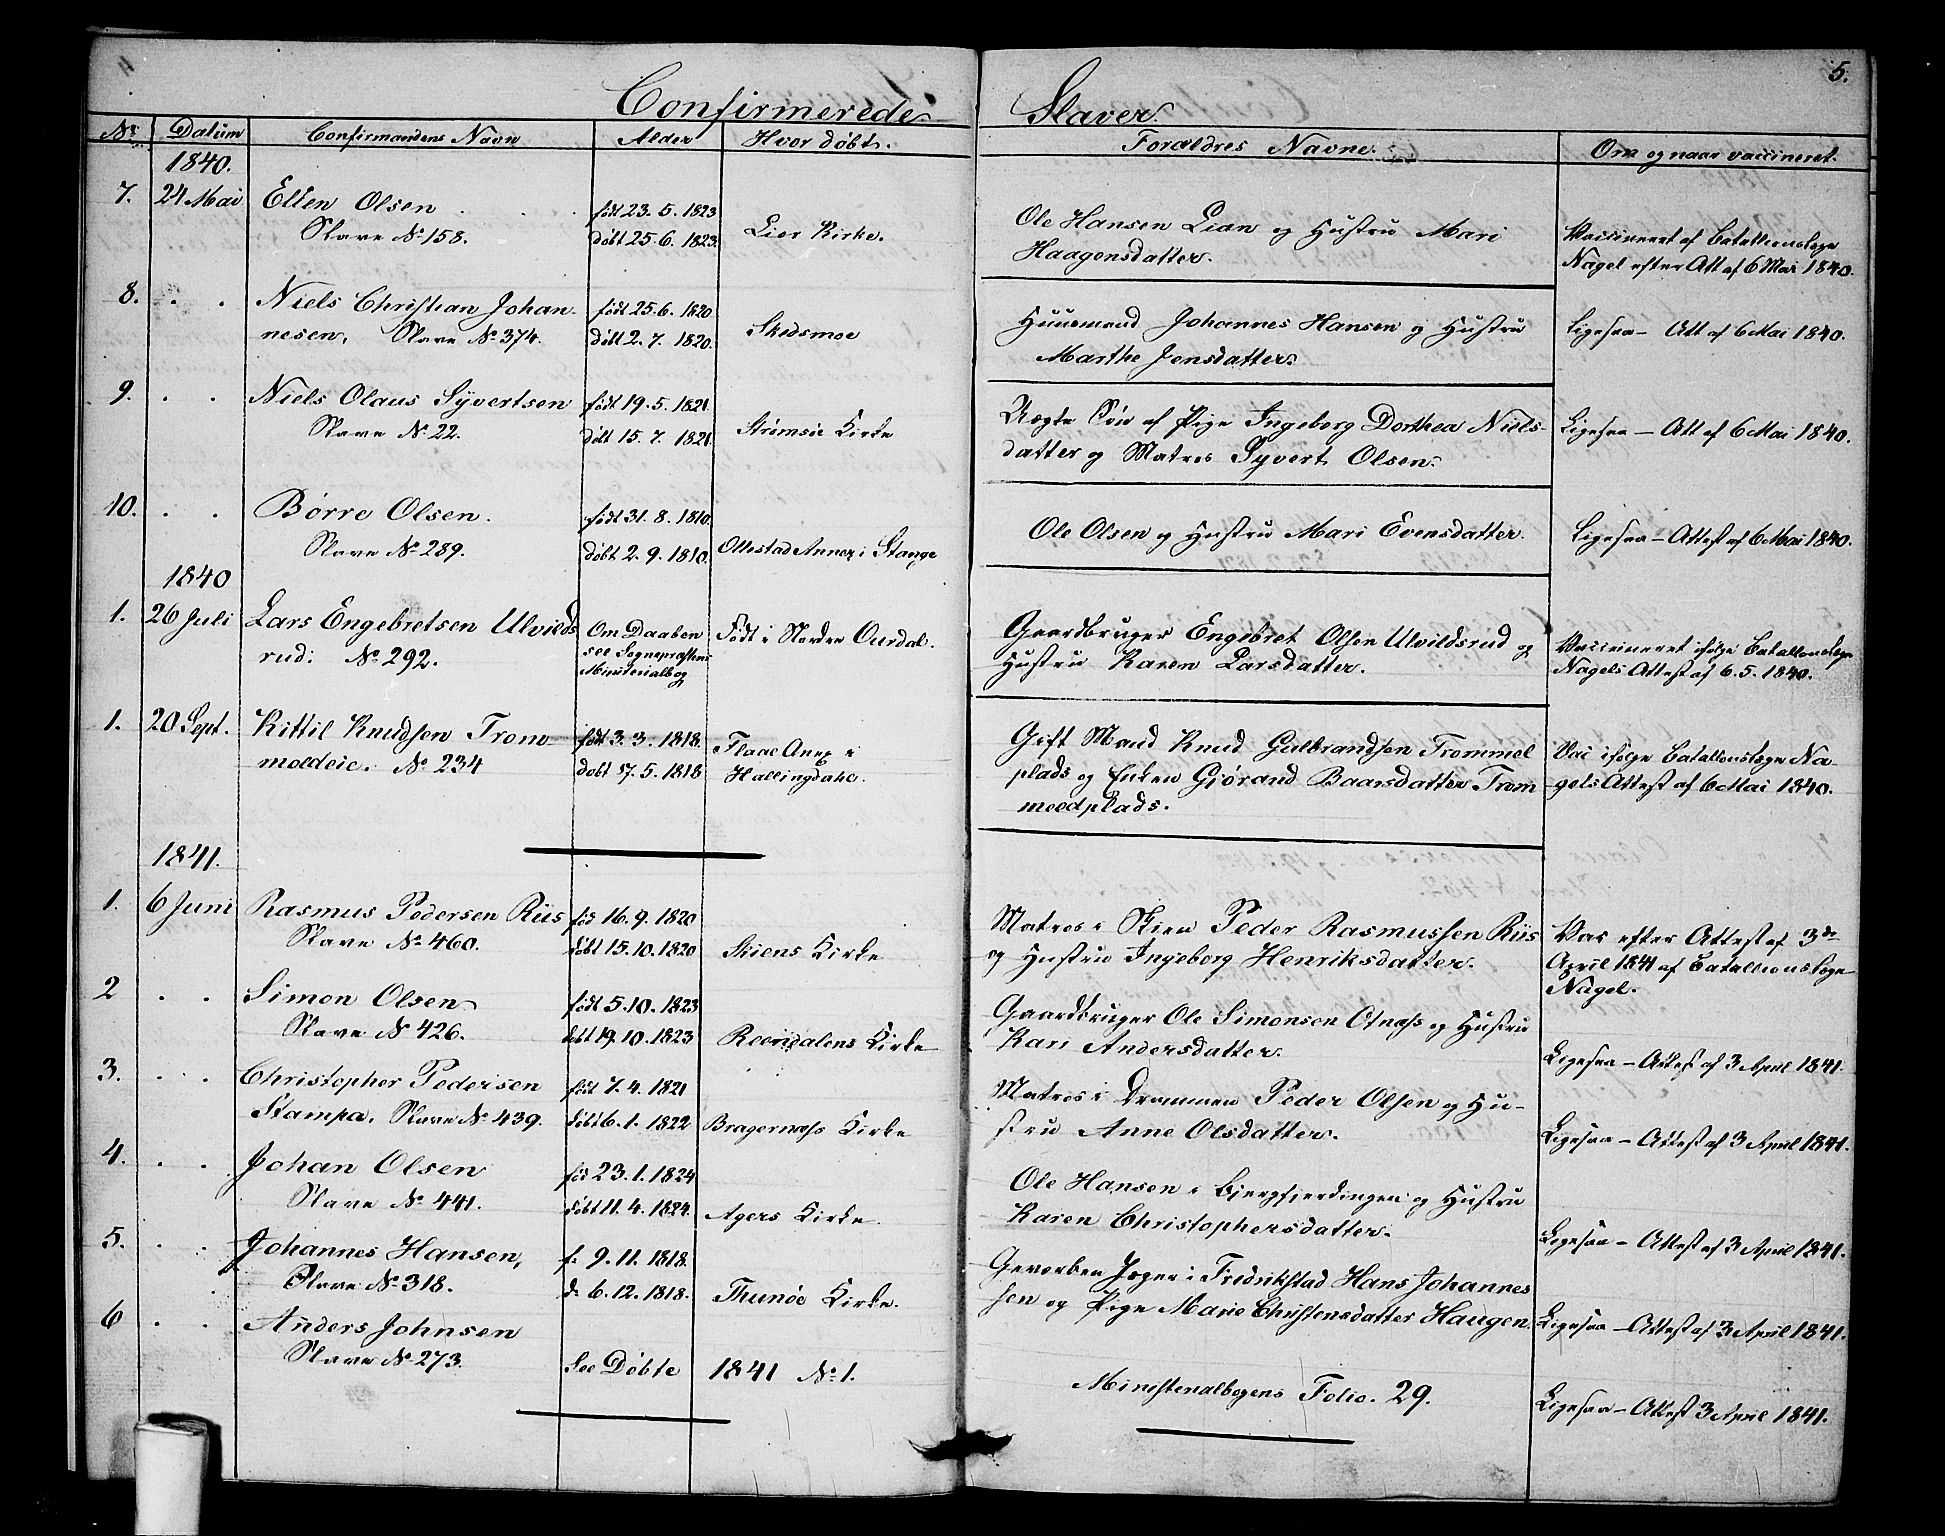 Confirmerede Slaver.
5.
No. Datum Confirmandens Navn Alder Hvor døbt. Forældres Navne. Om og naar vaccineret.
1840.
7. 24 Mai Ellen Olsen født 23. 5. 1823 Ole Hansen Lian og Hustru Mari Vaccineret af Bataillonslæge
Slave No 158. døbt 25. 6. 1823. Lier Kirke. Haagensdatter. Nagel efter Att af 6 Mai 1840.
8. . . Niels Christian Johan- født 25. 6. 1820 Huusmand Johannes Hansen og Hustru
nesen, Slave No 374. døbt 2. 7. 1820. Skedsmoe Marthe Jensdatter. Ligesaa – Att af 6 Mai 1840.
9. . . Niels Olaus Syvertsen født 19. 5. 1821. Uægte Søn af Pige Ingeborg Dorthea Niels-
Slave No 22. døbt 15. 7. 1821. Strømsøe Kirke datter og Matros Syvert Olsen. Ligesaa – Att af 6 Mai 1840.
10. . . Børre Olsen. født 31. 8. 1810.
Slave No 289. døbt 2. 9. 1810. Ottestad Annex i Stange Ole Olsen og Hustru Mari Evensdatter. Ligesaa – Attest af 6 Mai 1840.
1840
1. 26 Juli Lars Engebretsen Ulvilds- Om Daaben Født i Nordre Ourdal. Gaardbruger Engebret Olsen Ulvildsrud og Vaccineret ifølge Bataillonslæge
rud. No 292. see Sognepræstens Hustru Karen Larsdatter. Nagels Attest af 6. 5. 1840.
Ministerialbog
1. 20 Sept. Kittil Knudsen Trom- født 3. 3. 1818. Flaae Anex i Gift Mand Knud Gulbrandsen Trommel Vac ifølge Bataillonslæge Na-
moldeie. No 234 døbt 17. 5. 1818 Hallingdahl. plads og Enken Gjørand Baarsdatter Trom gels Attest af 6 Mai 1840.
meldplads.
1841.
1. 6 Juni Rasmus Pedersen Riis fød 16. 9. 1820 Matros i Skien Peder Rasmussen Riis Vac efter Attest af 3de
Slave No 460. døbt 15. 10. 1820 Skiens Kirke og Hustru Ingeborg Henriksdatter. April 1841 af Bataillonslæge
Nagel.
2 . . Simon Olsen født 5. 10. 1823 Gaardbruger Ole Simonsen Otnæss og Hustru
Slave No 426. døbt 19. 10. 1823 Reendalens Kirke Kari Andersdatter. Ligesaa – Attest af 3 April 1841.
3. . . Christopher Pedersen født 7. 4. 1821 Matros i Drammen Peder Olsen og Hu-
Stampa. Slave No 439. døbt 6. 1. 1822 Bragernæss Kirke stru Anne Olsdatter. Ligesaa – Attest af 3 April 1841.
4. . . Johan Olsen fød 23. 1. 1824 Ole Hansen i Bjergfjerdingen og Hustru
Slave No 441. døbt 11. 4. 1824. Agers Kirke Karen Christophersdatter. Ligesaa – Attest af 3 April 1841.
5. . . Johannes Hansen, f. 9. 11. 1818. Gevorben Jæger i Fredrikstad Hans Johannes
Slave No 318. d. 6. 12. 1818. Thunøe Kirke. sen og Pige Marie Christensdatter Haugen. Ligesaa – Attest af 3 April 1841.
6 . . Anders Johnsen
Slave No 273. See Døbte 1841 No 1. Ministerialbogens Folio. 29. Ligesaa – Attest 3 April 1841.